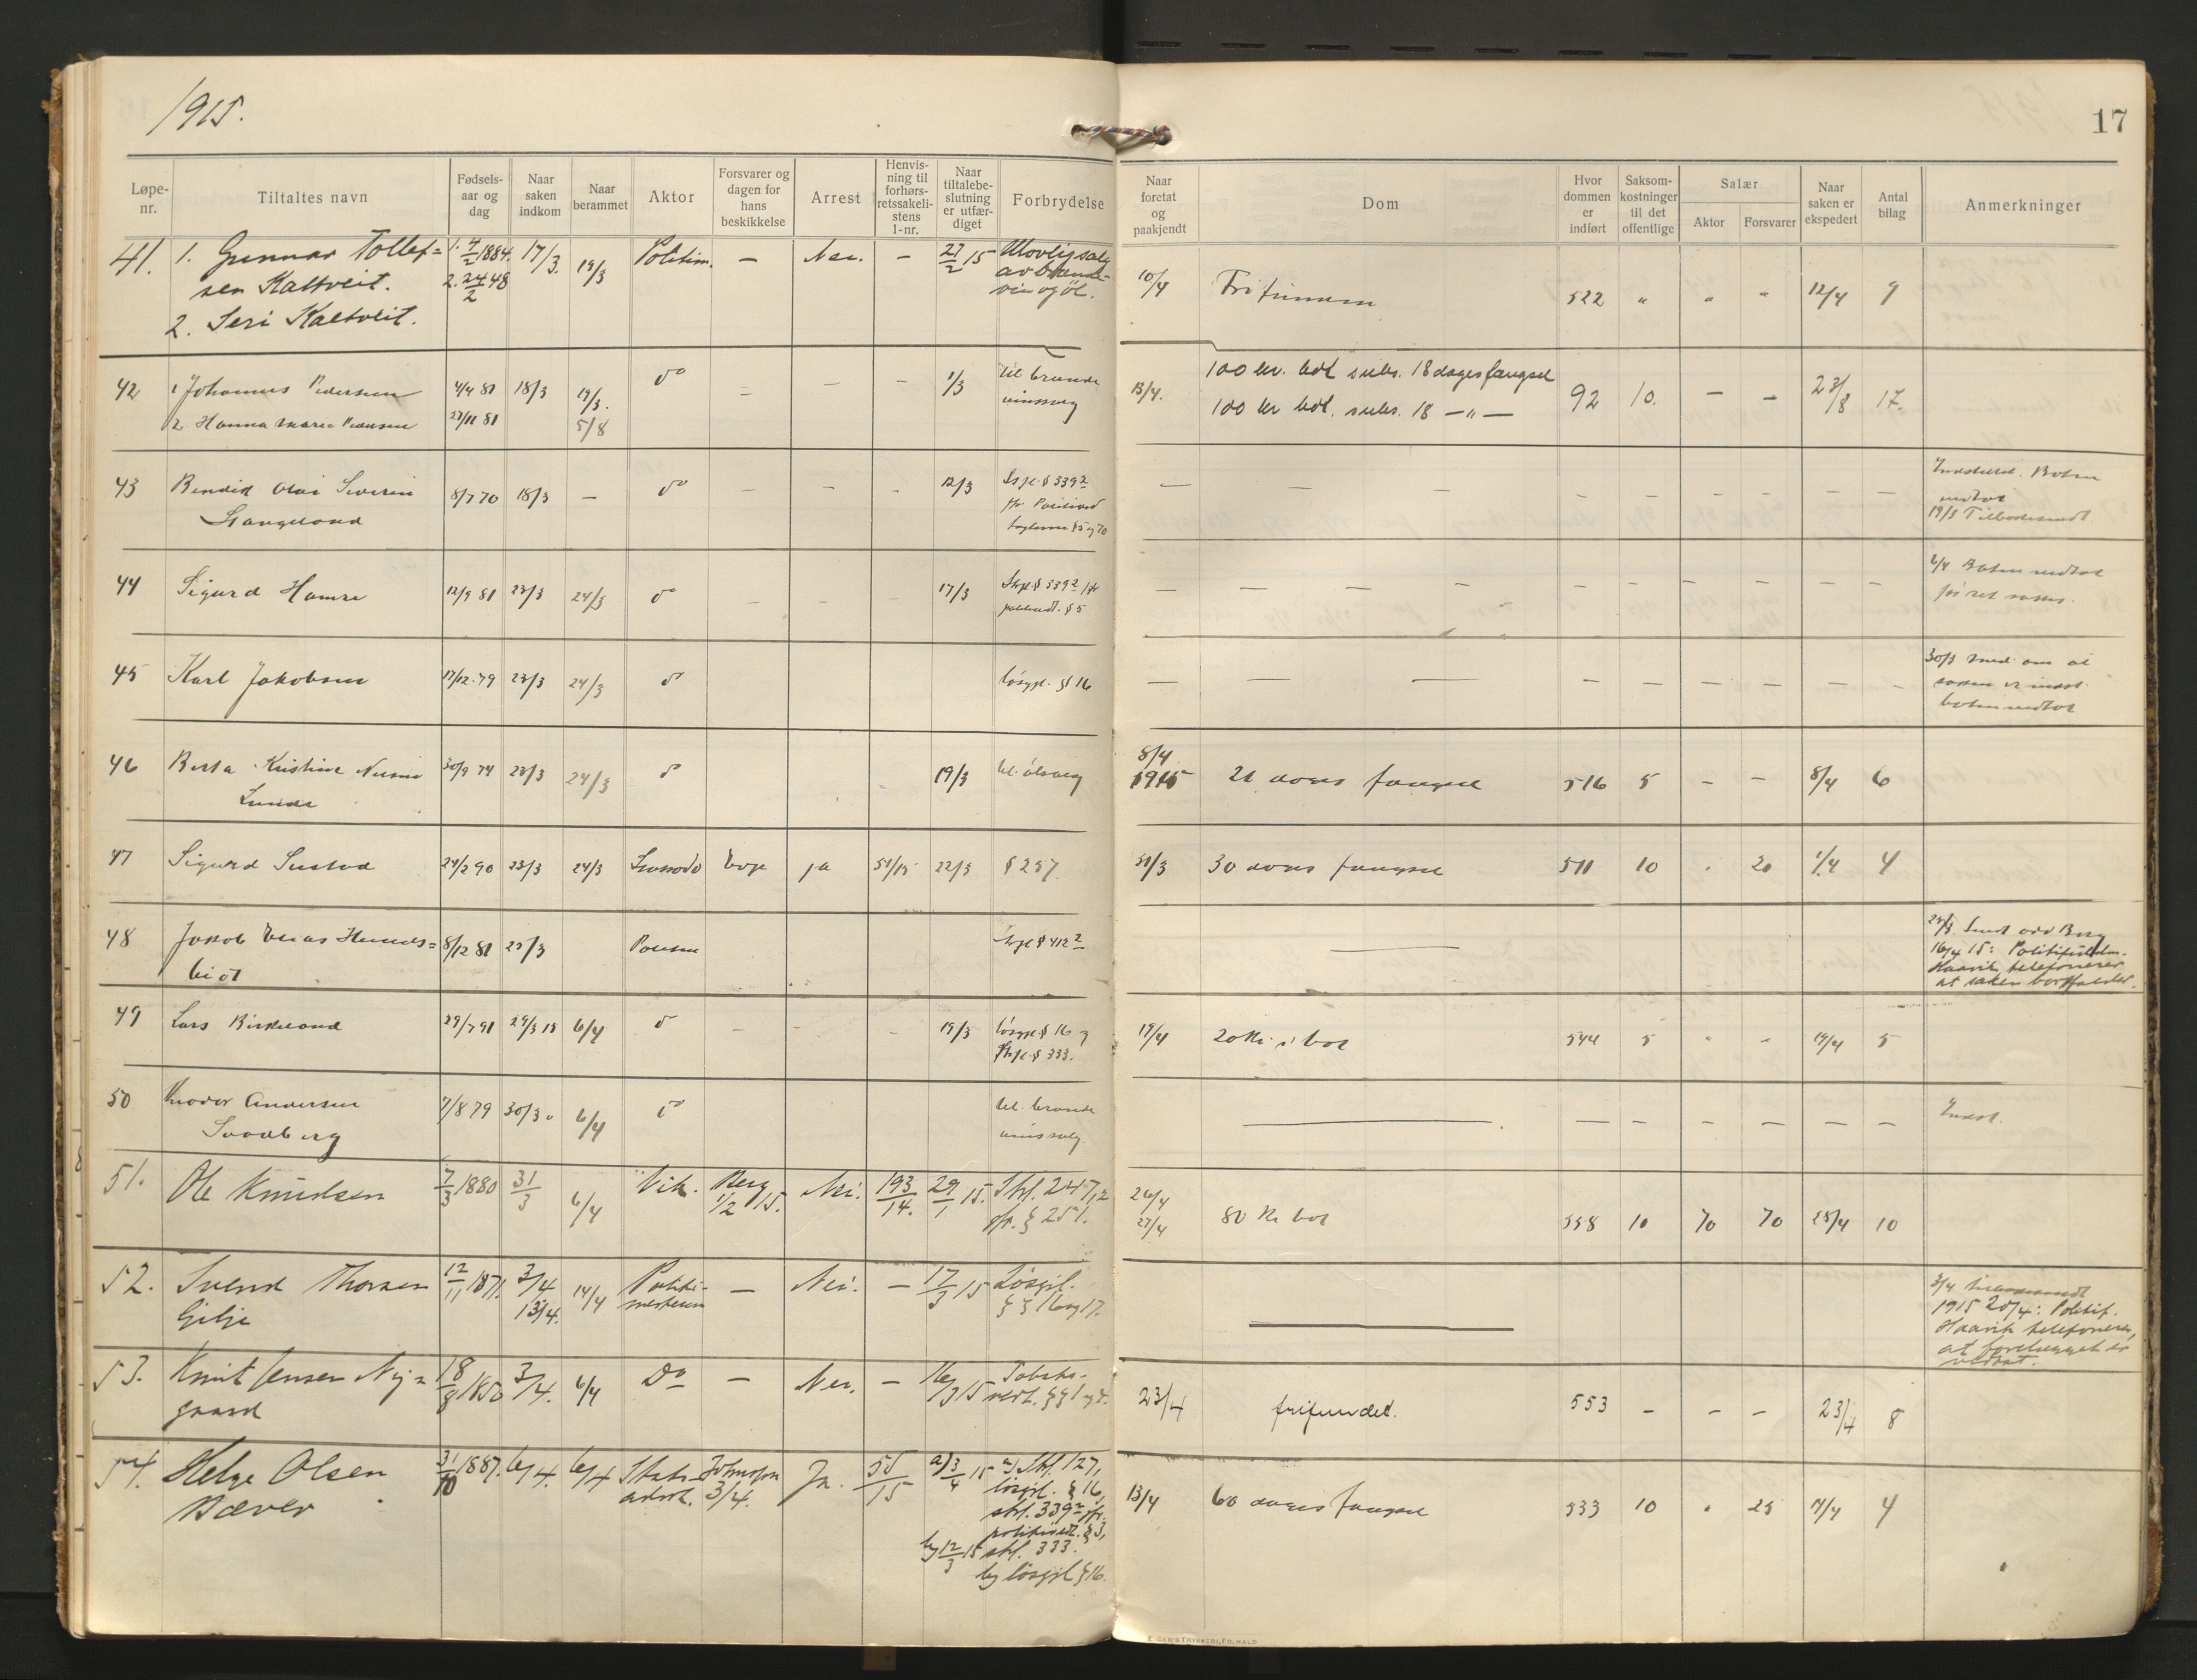 1915.
17
Løpe-nr.
Tiltaltes navn
Fødsels-aar og dag
Naar saken indkom
Naar berammet
Aktor
Forsvarer og dagen for hans beskikkelse
Arrest
Henvis-ning til forhørs-retssakeli-stens l-nr.
Naar tiltalebe-slutning er utfær-diget
Forbrydelse
Naar foretat og paakjendt
Dom
Hvor dommen er indført
Saksom-kostninger til det offentlige
Salær
Aktor
Forsvarer
Naar saken er ekspedert
Antal bilag
Anmerkninger
41. 1. Gunnar Tollef= 1. 4/2 1884. 17/3. 19/3 Politim. — Nei. — 27/2 15 Ulovlig salg
sen Kaltveit. 2. 24/2 48 av brænde-
2. Seri Kaltveit. vin og øl.
10/4 Frifunnen 522 " " " 12/4 9
42 1 Johannes Pedersen 4/4 81 18/3 19/3. do — — — 1/3 til. brænde
2. Hanna Marie Pedersen 27/11 81 5/8 vinssalg
13/4. 100 kr. bot subs. 18 dages fængsel 92 10. — — 23/8 17.
100 kr bot. subs. 18 — " —
43 Bendik Olai Severin 8/7 70 18/3 — do — — — 12/3 § 339 2
Stangeland § 5 og 70
— — — — — — — — — — Botten
vedtat
19/3
44 Sigurd Hamre 12/9 81 23/3 24/3 do — — — 17/3 § 339 2 jfr
§ 5
— — — — — — — — — — 6/4 Boten vedtat
før ret sattes.
45 Karl Jakobsen 17/12 79 23/3 24/3 do løsgjl. § 16
— — — — — — — — — — 30/3 med. om at
saken er indst.
boten vedtat
46 Berta Kristine 30/9 74 23/3 24/3 do 19/3 ul. ølsalg
Lunde
8/4 1915 21 dages fængsel 516 5 — — 8/4 6
47 Sigurd 24/2 90 23/3 24/3 ja 51/15 22/3 § 257.
31/3 30 dages fængsel 511 10 . 20 1/4 4
48 Jakob Elias 8/12 81 25/3 § 412 2
— 16/4 15: Politifuldm.
Haavik telefonerer
at saken bortfalder.
49 Lars Birkeland 29/7 91 29/3 15 6/4 do — — — 19/3 løsgjl. § 16 og
§ 333.
19/4 20 kr. i bot 544 5 " " 19/4 5
50 Andersen 7/8 79 30/3 6/4 do ul. brænde
Svadberg vinssalg
— — — — — — — Indst.
51. Ole Knudsen 7/3 1880 31/3 6/4 Vik. Berg 1/2 15. Nei. 193/14. 29/1 15. Strl. 247, 2
jfr. § 251.
26/4
27/4 80 kr bot 558 10 70 70 28/4 10
52. Svend Thorsen 12/11 1871. 3/4 14/4 Politi- — Nei. — 17/3 15 Løsgjl.
Gilje 13/4. mesteren §§ 16 og 17.
— 3/4
1915 20/4: Politif.
Haavik telefonerer,
at forelægget er
vedtat.
53. Knut Jensen Ny= 18/8 1850 3/4. 6/4 Do — Nei. — 16/3 15 Tobaks-
gaard vedt. §§ 1 og 2.
23/4 frifundet. 553 — — — 23/4 8
54. Helge Olsen 31/10 1887. 6/4. 6/4 Stats- Johnsson Ja. 55/15 a) 3/4 15 a) Strl. 127,
Bæver advok. 3/4. løsgjl. § 16,
strl. 339 2 jfr.
politived. § 3,
b) 12/3 15 strl. 333.
b) løsgjl § 16.
13/4 60 dages fængsel 533 10 " 25 14/4 4
E. SEM'S TRYKKERI, FR.HALD